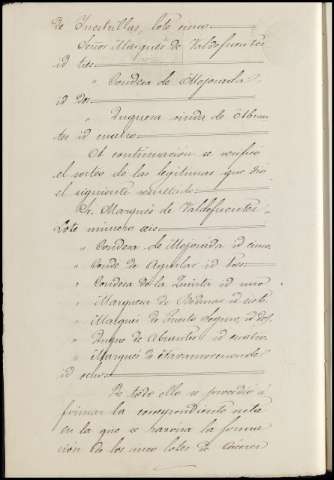 de Inestrillas, lote cinco
Señor Marqués de Valdefuentes
id tres
" Condesa de Mejorada
id dos
" Duquesa viuda de Abran
tes id cuatro
A continuación se verificó
el sorteo de las legitimas que dió
el siguiente resultado
Sr. Marqués de Valdefuentes
Lote número seis
" Condesa de Mejorada id cinco
" Conde de Aguilar id tres
" Condesa de la Quinta id uno
" Marquesa de id siete
" Marqués de Puerto Seguro, id dos
" Duque de Abrantes id cuatro
" Marqués de Navamorcuende
id ocho
De todo ello se procedió á
firmar la correspondiente nota
en la que se haroia la forma
ción de los once lotes de Cáceres